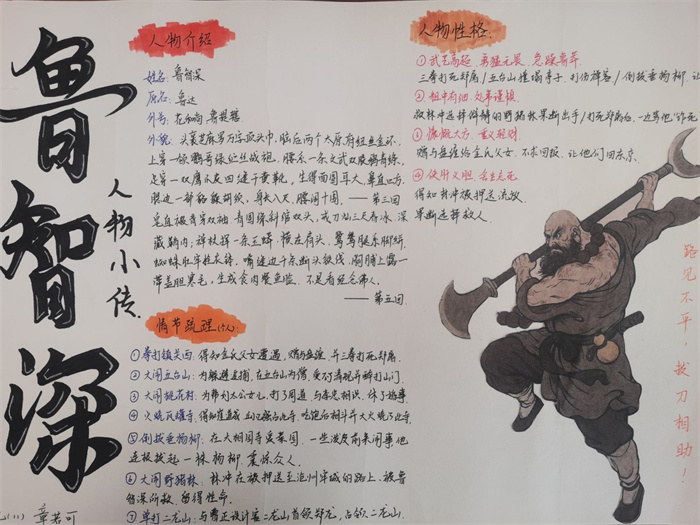 鲁智深
人物小传
人物介绍
姓名:鲁智深
原名:鲁达
外号:花和尚、鲁提辖
外貌:头裹芝麻罗万字顶头巾,脑后两个太原府纽丝金环,
上穿一领鹦哥绿纻丝战袍,腰系一条文武双股鸦青绦,
足穿一双鹰爪皮四缝干黄靴,生得面圆耳大,鼻直口方,
腮边一部貉𧳘胡须,身长八尺,腰阔十围。——第三回
皂直裰背穿双袖,青圆绦斜绾双头,戒刀灿三尺春冰,深
藏鞘内;禅杖挥一条玉蟒,横在肩头。鹭鸶腿紧系脚絣,
蜘蛛肚牢拴衣钵。嘴缝边攒千条断头铁线,胸脯上露一
带盖胆寒毛,生成食肉餐鱼脸,不是看经念佛人。
——第五回
情节梳理
①拳打镇关西:得知金氏父女遭遇,赠与盘缠,并三拳打死郑屠。
②大闹五台山:为躲避追捕,在五台山为僧,受不了寺规并醉打山门。
③大闹桃花村:为帮刘太公女儿,打了周通,与李忠相识,休了婚事
④火烧瓦罐寺:得知崔道成、丘小乙强占此寺,吃饱后相斗并大火烧了此寺.
⑤倒拔垂杨柳:在大相国寺看菜园,一些泼皮前来闹事他
连根拔起一株杨柳,震惊众人.
⑥大闹野猪林:林冲在被押送至沧州牢城的路上,被鲁
智深所救,留得性命.
⑦单打二龙山:与曹正设计杀二龙山首领邓龙,占领二龙山.
章若可
人物性格
①武艺高超 勇猛无畏 急躁鲁莽
三拳打死郑屠/五台山撞塌亭子,打伤禅客/倒拔垂杨柳 让
②粗中有细 处事谨慎
救林冲选择僻静的野猪林果断出手/打死郑屠后,一边骂他"诈死
③慷慨大方 重义轻财
赠与盘缠给金氏父女,不求回报,让他们回东京.
④侠肝义胆 舍生忘死
得知林冲被押送流放
果断选择救人.
路见不平,拔刀相助!